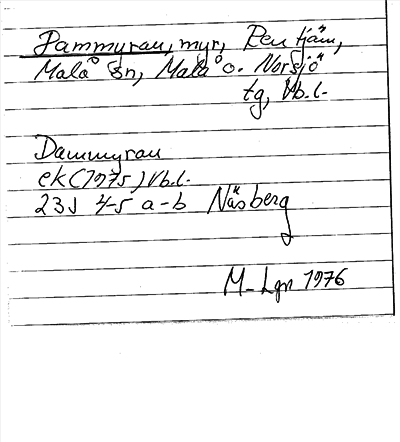 Dammyran, myr, Rentjäln,
Malå sn, Malå o. Norsjö
tg, Vb.l.
Dammyran
ek (1975) Vb.l.
23J 4-5 a-b Näsberg
M-Lgn 1976